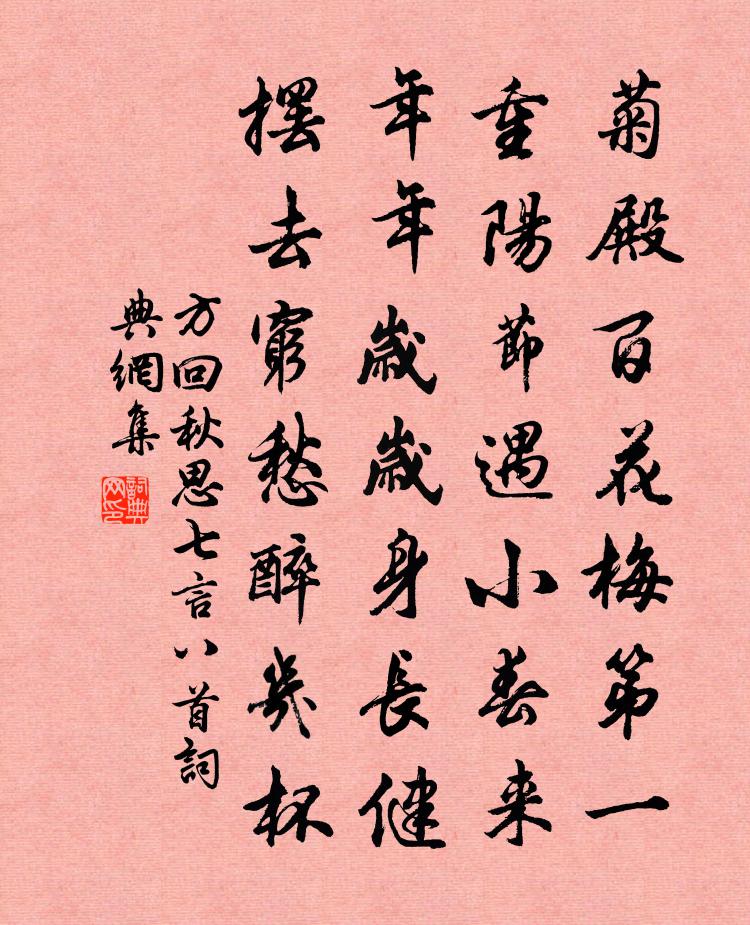 菊殿百花梅第一
重陽節遇小春来
年年歲歲身長健
擺去窮愁醉幾杯
方回秋思七言八首詞
典網集
詞典网印